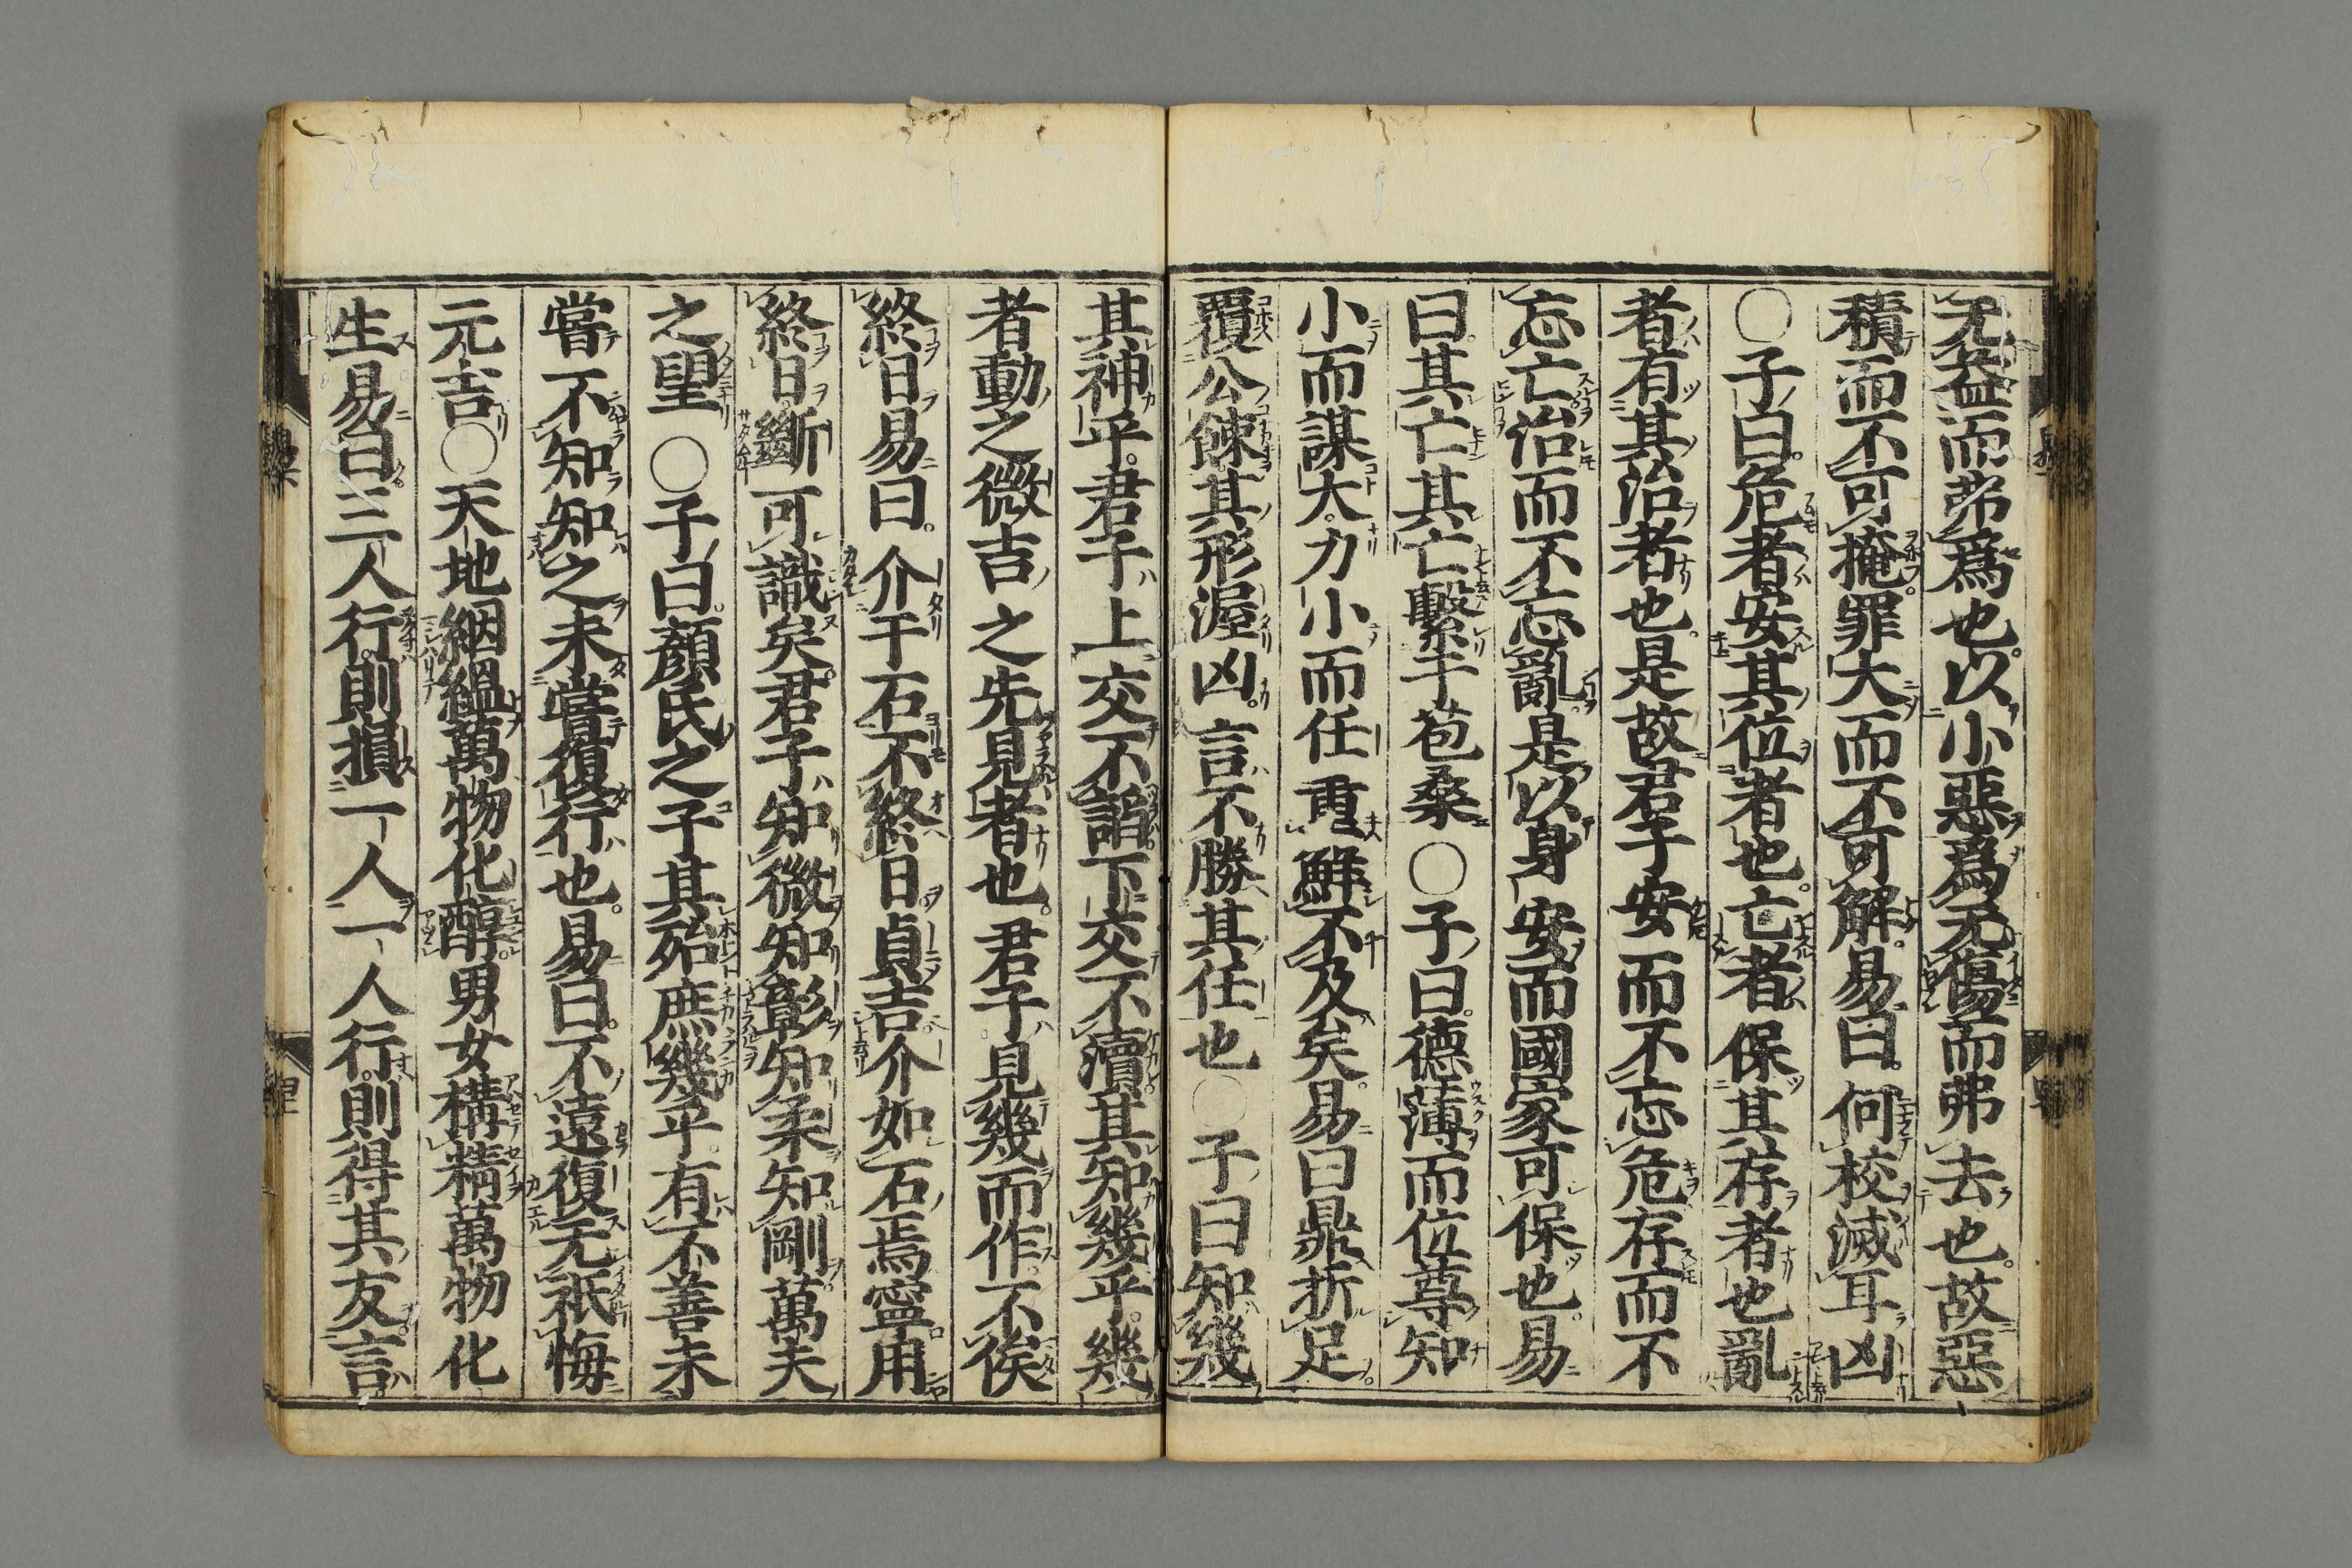 无益而弗爲也以小惡爲无傷而弗去也故惡
積而不可掩罪大而不可解易曰何校滅耳凶
○子曰危者安其位者也亡者保其存者也亂
者有其治者也是故君子安而不忘危存而不
忘亡治而不忘亂是以身安而國家可保也易
曰其亡其亡繫于苞桑○子曰德薄而位尊知
小而謀大力小而任重鮮不及矣易曰鼎折足
覆公餗其形渥凶言不勝其任也○子曰知幾
其神乎君子上交不諂下交不瀆其知幾乎幾
者動之微吉之先見者也君子見幾而作不俟
終日易曰介于石不終日貞吉介如石焉寧用
終日斷可識矣君子知微知彰知柔知剛萬夫
之望○子曰顏氏之子其殆庶幾乎有不善未
嘗不知知之未嘗復行也易曰不遠復无祇悔
元吉○天地絪縕萬物化醇男女構精萬物化
生易曰三人行則損一人一人行則得其友言